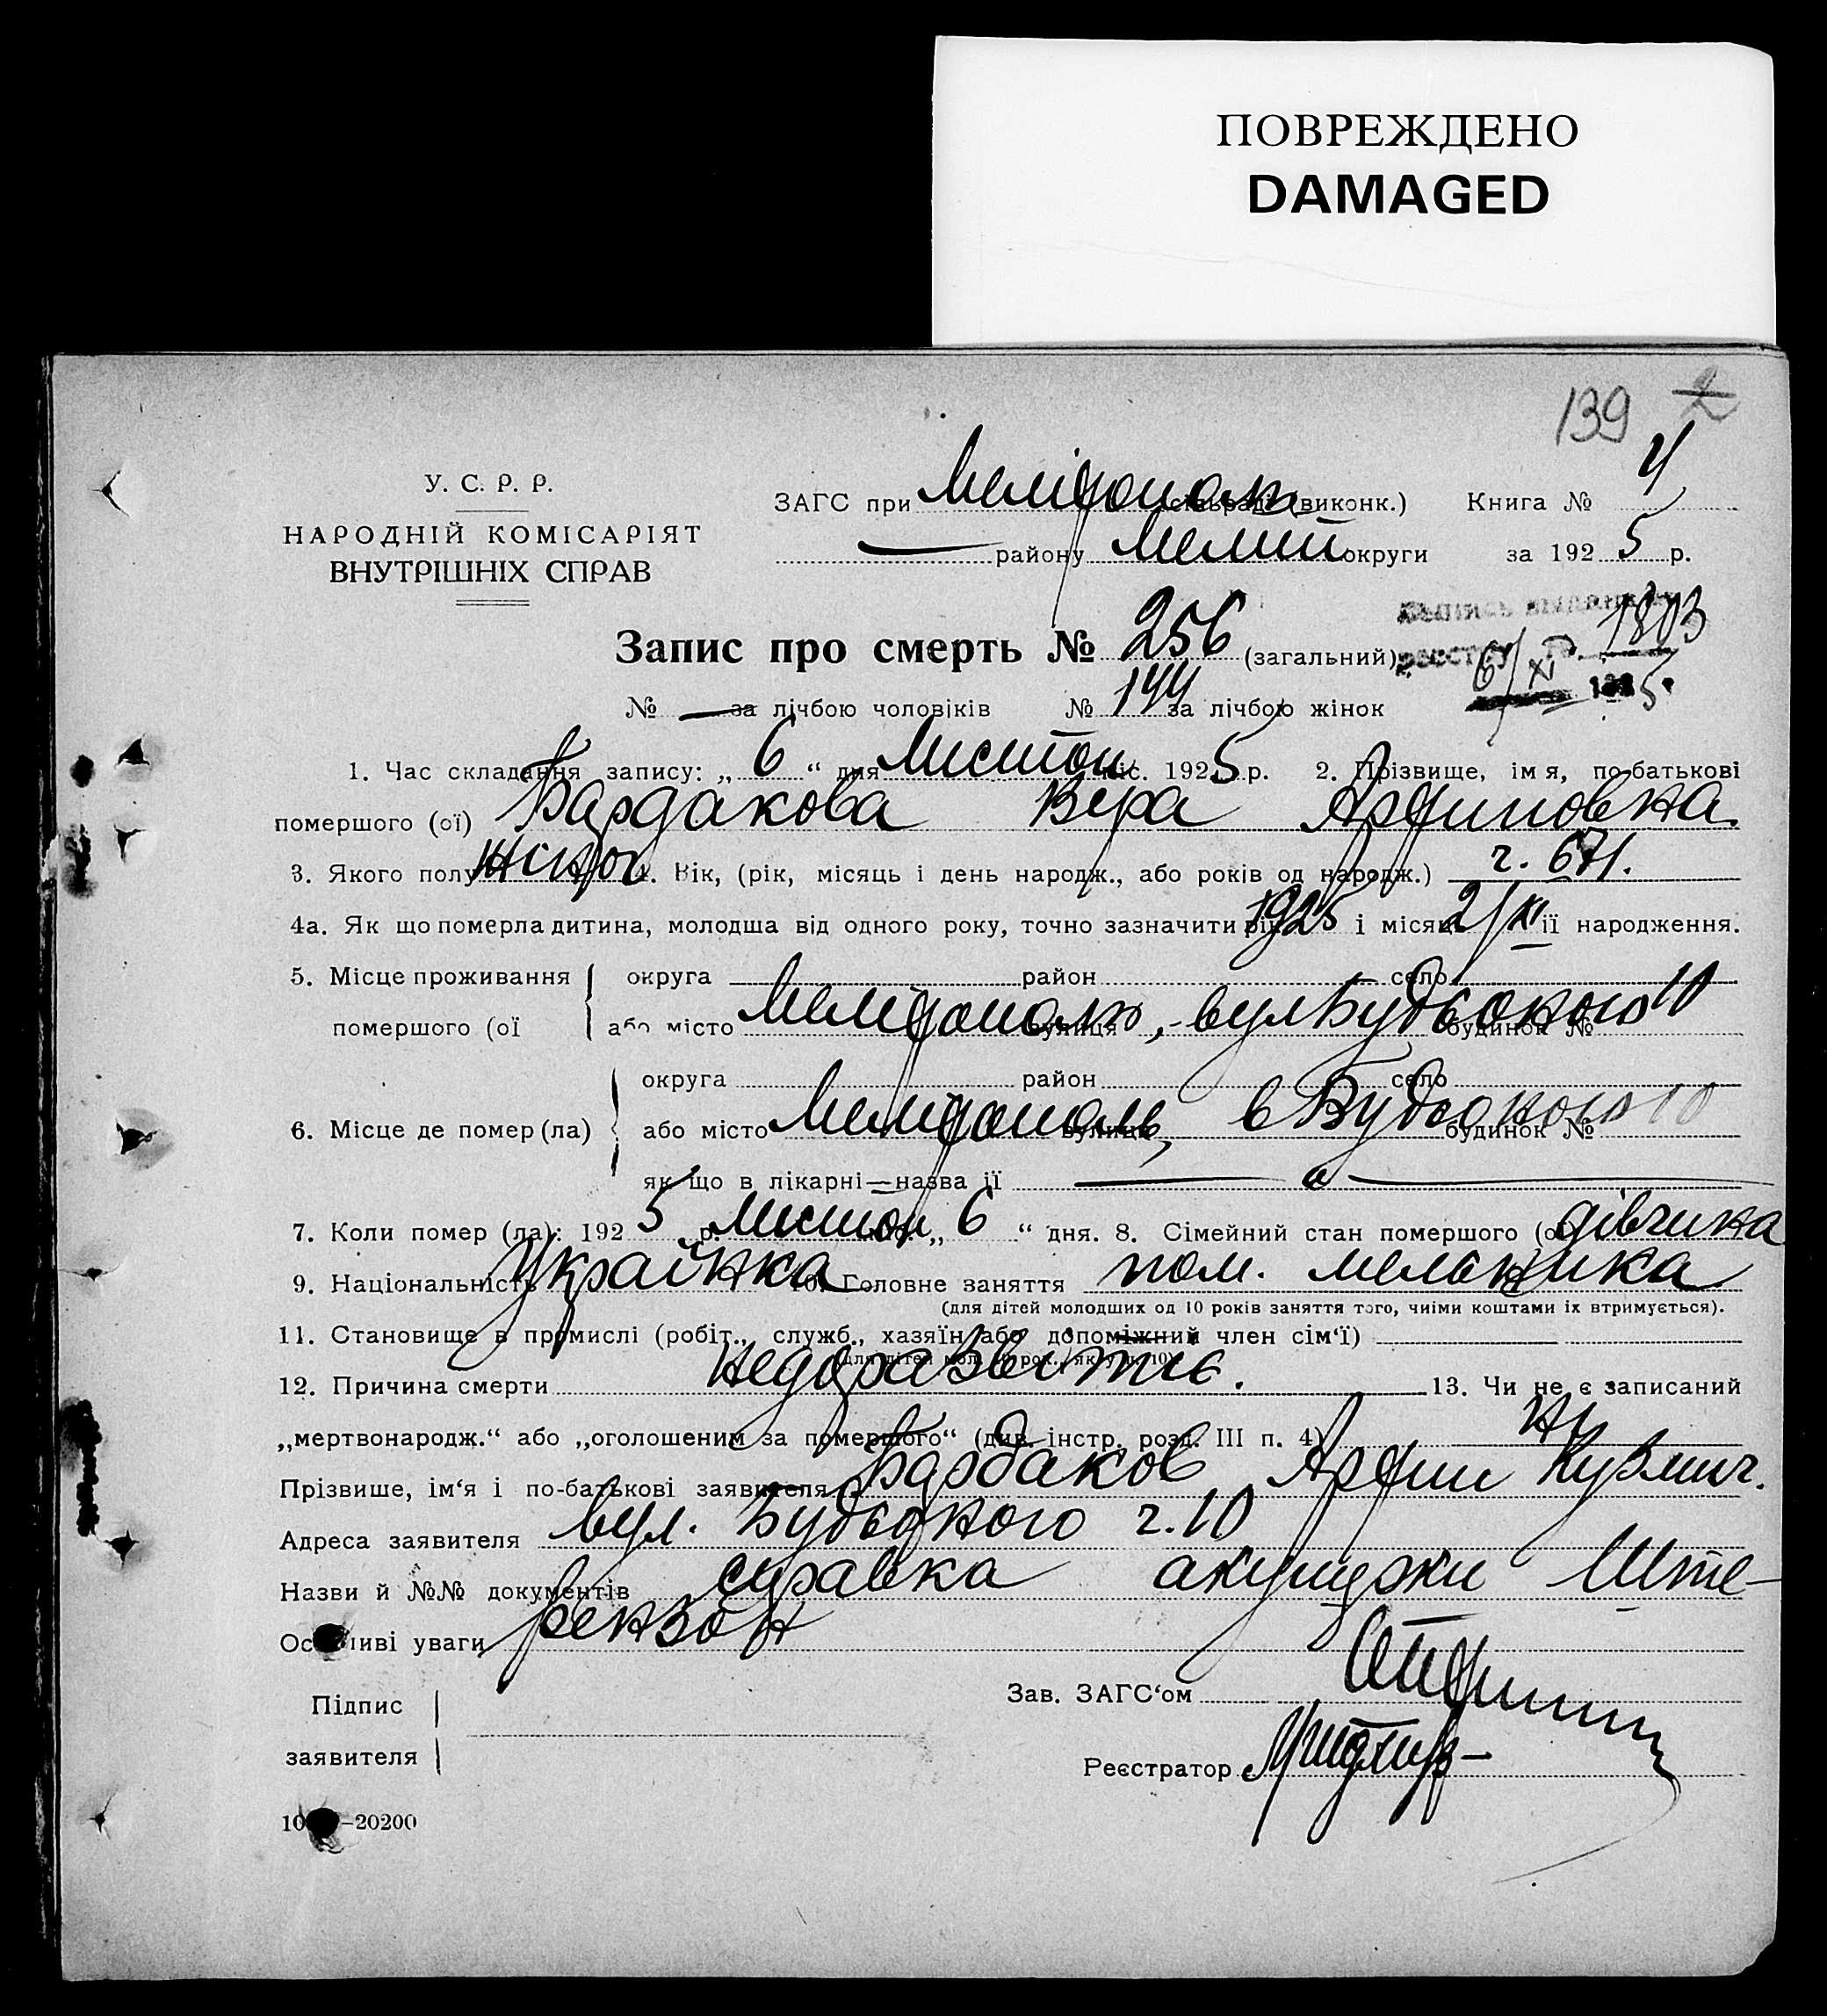 ПОВРЕЖДЕНО
DAMAGED
139 2
У. С. Р. Р.
НАРОДНІЙ КОМІСАРІЯТ
ВНУТРІШНІХ СПРАВ
ЗАГС при Мелітополь (виконк.) Книга № 4
— району Мелит округи за 1925 р.
Запис про смерть № 256 (загальний) 1803
6/XI 1925
№ — за лічбою чоловіків № 144 за лічбою жінок
1. Час складання запису: „ 6 “ дня Листоп міс. 1925 р. 2. Прізвище, імя, по-батькові
помершого (ої) Бардакова Вера Архиповна
3. Якого полу жіноч 4. Вік, (рік, місяць і день народж., або років од народж.) ч. 671.
4а. Як що померла дитина, молодша від одного року, точно зазначити рік 1925 і місяць 2/XI її народження.
5. Місце проживання округа район село
помершого (ої або місто Мелітополь, вулиця вул будинок № 10
6. Місце де помер (ла) округа район село
або місто Мелітополь, вулиця в будинок № 10
як що в лікарні—назва її —
7. Коли помер (ла): 1925 р. Листоп міс. „ 6 “ дня. 8. Сімейний стан помершого (ої) дівчина
9. Національність Українка 10. Головне заняття пом. мельника
(для дітей молодших од 10 років заняття того, чиїми коштами їх втримується).
11. Становище в промислі (робіт., служб., хазяїн або допоміжний член сім‘ї)
(для дітей мол. 10 рок., як у п. 10)
12. Причина смерти Недоразвітіє. 13. Чи не є записаний
„мертвонародж.“ або „оголошеним за помершого“ (див. інстр. розд. III п. 4) Ні
Прізвише, ім‘я і по-батькові заявителя Бардаков Архип Кузмич.
Адреса заявителя вул. ч. 10
Назви й №№ документів справка акушерки Ште-
Особливі уваги рензон
Підпис
заявителя
Зав. ЗАГС‘ом
Реєстратор
10 —20200